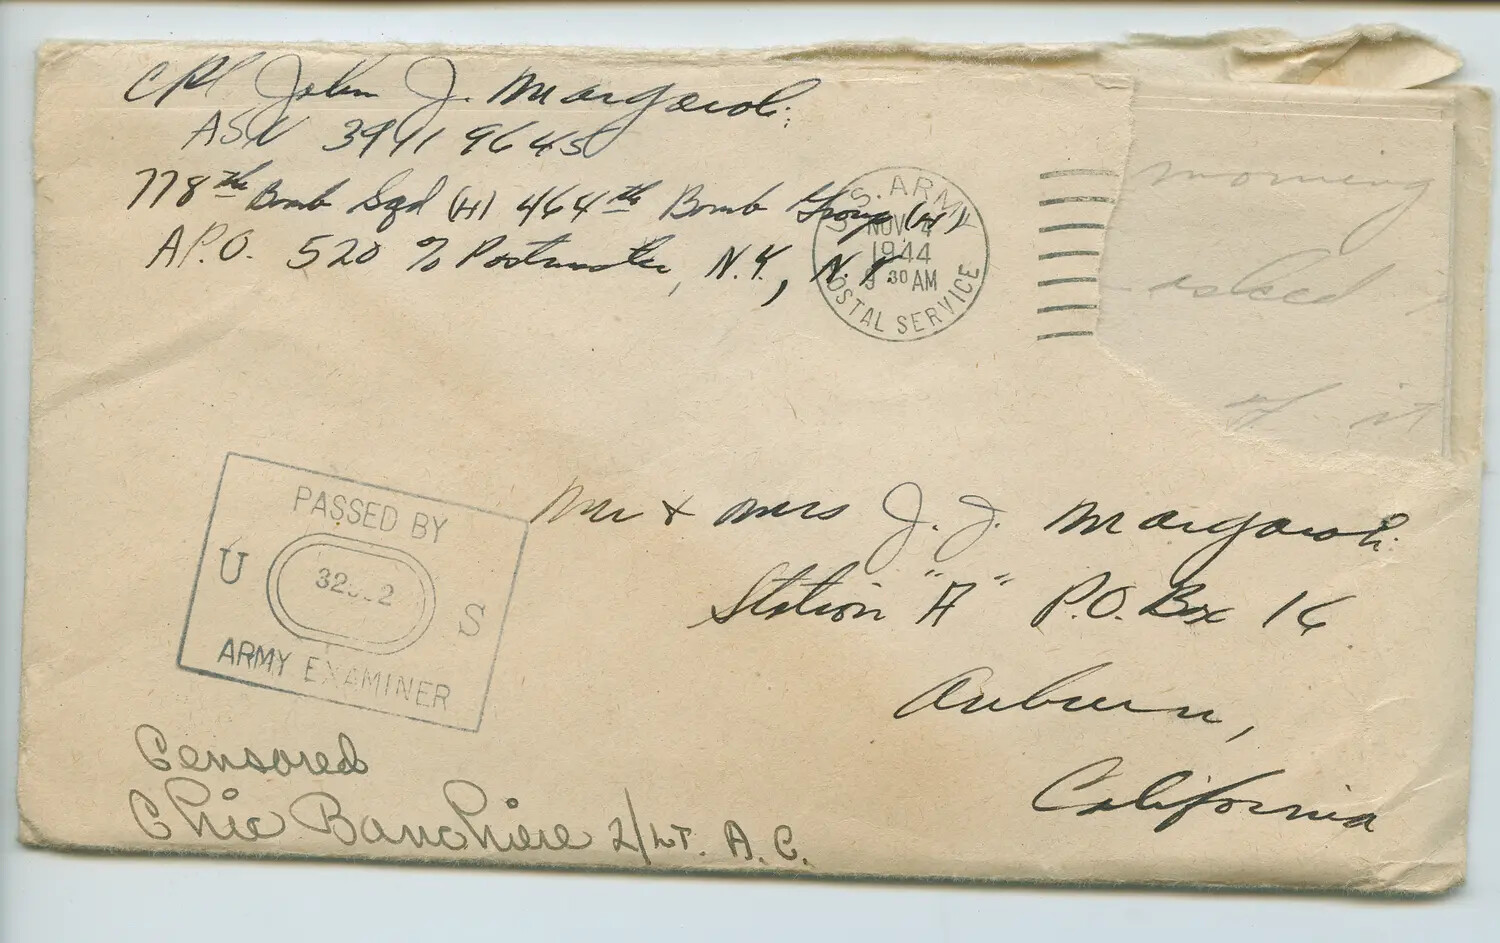 Cpl John J. Margaroli
ASN 39119645
778th Bomb Sqd (H) 464th Bomb Group (H)
A.P.O. 520 % Postmaster, N.Y., N.Y.
U.S. ARMY
NOV 4
1944
9 30 AM
POSTAL SERVICE
morning
asked
of it
PASSED BY
U S
ARMY EXAMINER
Mr & Mrs J. J. Margaroli
Station "A" P.O. Box 16
Auburn,
California
Censored
Chic Banchiere 2/LT. A.C.